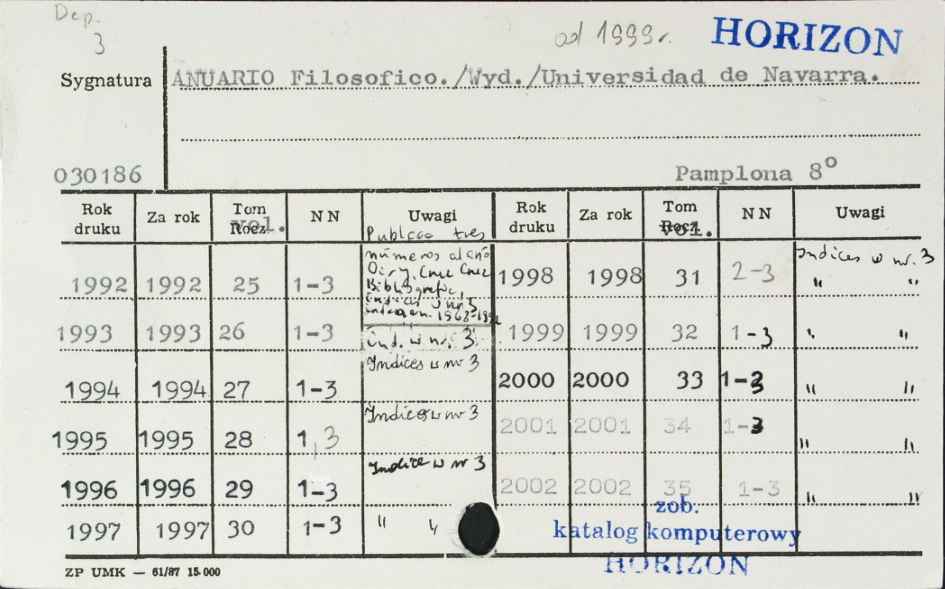 Dep.
3
od 1999r.
HORIZON
Sygnatura
ANUARIO Filosofico./Wyd./Universidad de Navarra.
030186
Pamplona 8°
Rok druku Za rok Tom Rocz. vol. NN Uwagi Rok druku Za rok Tom Rocz. vol. NN Uwagi
Publica tres
números al año
Cruz Cruz
Bibliografia,
1992 1992 25 1-3
1993 1993 26 1-3 ind. w nr. 3
1994 1994 27 1-3 Indices w nr 3
1995 1995 28 1,3 Indices w nr 3
1996 1996 29 1-3 Indice w nr 3
1997 1997 30 1-3 " "
Indices w nr. 3
1998 1998 31 2-3 " "
1999 1999 32 1-3 " "
2000 2000 33 1-3 " "
2001 2001 34 1-3 " "
2002 2002 35 1-3 " "
zob.
katalog komputerowy
HORIZON
ZP UMK — 61/87 15.000